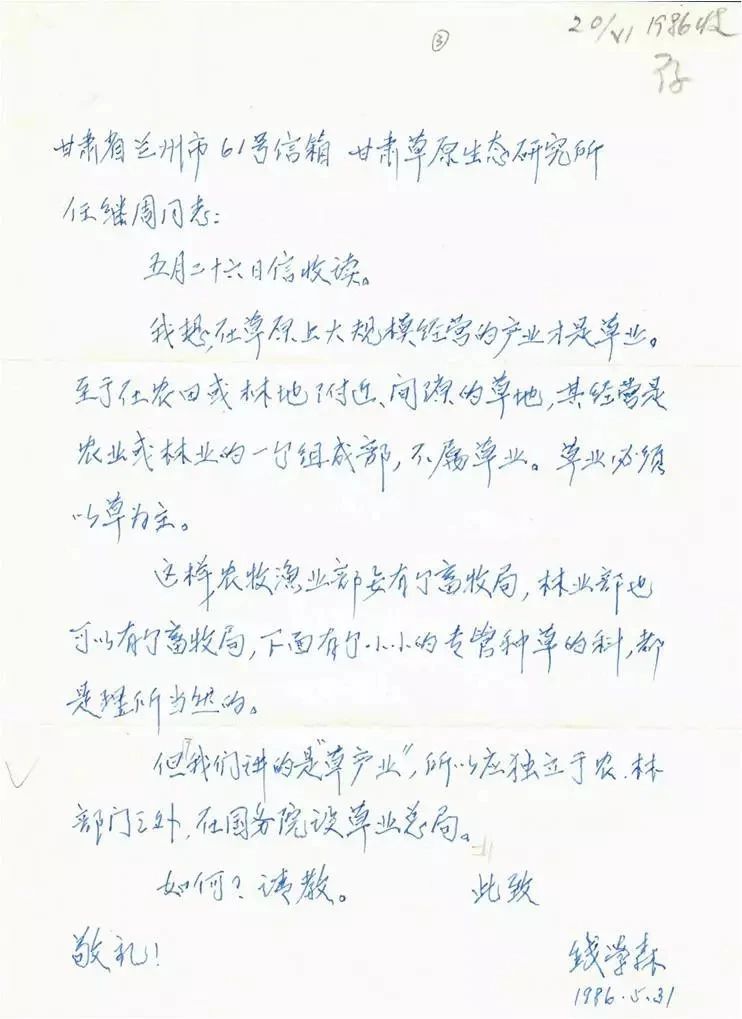 20/VI 1986收
存
③
甘肃省兰州市61号信箱 甘肃草原生态研究所
任继周同志:
五月二十六日信收读。
我想,在草原上大规模经营的产业才是草业。
至于在农田或林地附近、间隙的草地,其经营是
农业或林业的一个组成部,不属草业。草业必须
以草为主。
这样,农牧渔业部会有个畜牧局,林业部也
可以有个畜牧局,下面有个小小的专管种草的科,都
是理所当然的。
但我们讲的是“草产业”,所以应独立于农、林
部门之外,在国务院设草业总局。
如何?请教。 此致
敬礼!
钱学森
1986.5.31